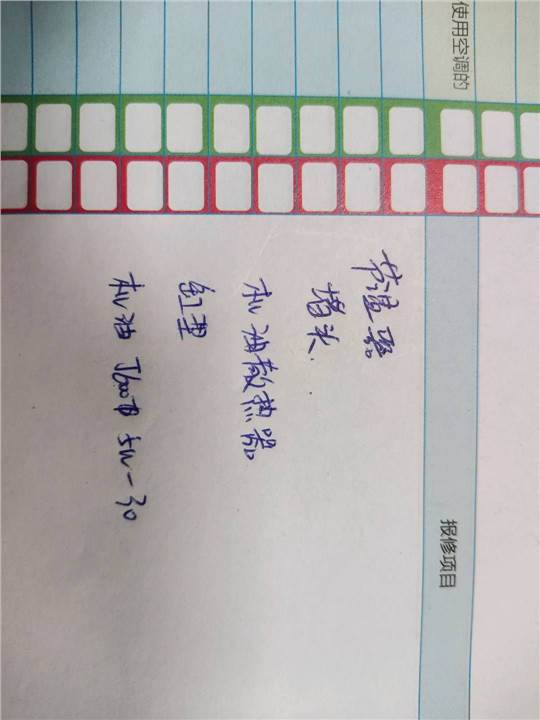 使用空调的
报修项目
节温器
堵头
机油散热器
机油 5w-30